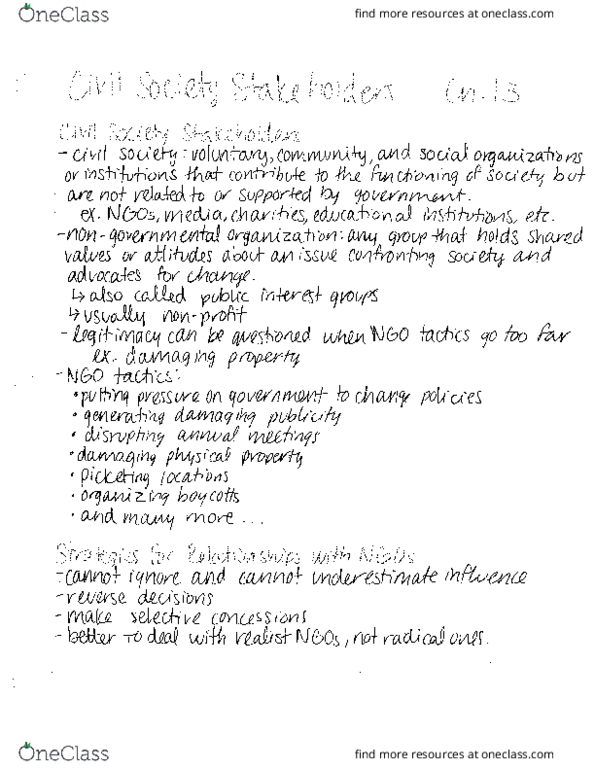 OneClass
find more resources at oneclass.com
Civil Society Stakeholders Ch. 13
Civil Society Stakeholders
- civil society: voluntary, community, and social organizations
or institutions that contribute to the functioning of society but
are not related to or supported by government.
ex. NGOs, media, charities, educational institutions, etc.
- non-governmental organization: any group that holds shared
values or attitudes about an issue confronting society and
advocates for change.
↳ also called public interest groups
↳ usually non-profit
- legitimacy can be questioned when NGO tactics go too far
ex. damaging property
- NGO tactics:
• putting pressure on government to change policies
• generating damaging publicity
• disrupting annual meetings
• damaging physical property
• picketing locations
• organizing boycotts
• and many more ...
Strategies for Relationships with NGOs
- cannot ignore and cannot underestimate influence
- reverse decisions
- make selective concessions
- better to deal with realist NGOs, not radical ones.
OneClass
find more resources at oneclass.com